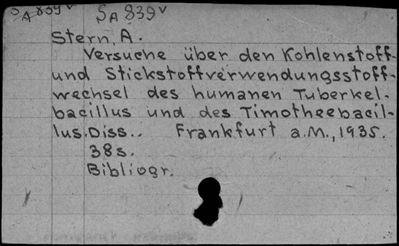 SA 839v SA 839v
Stern, A.
Versuche über den Kohlenstoff-
und Stickstoffverwendungsstoff-
wechsel des humanen Tuberkel-
bacillus und des Timotheebacil-
lus. Diss.. Frankfurt a.M., 1935.
38s.
Bibliogr.